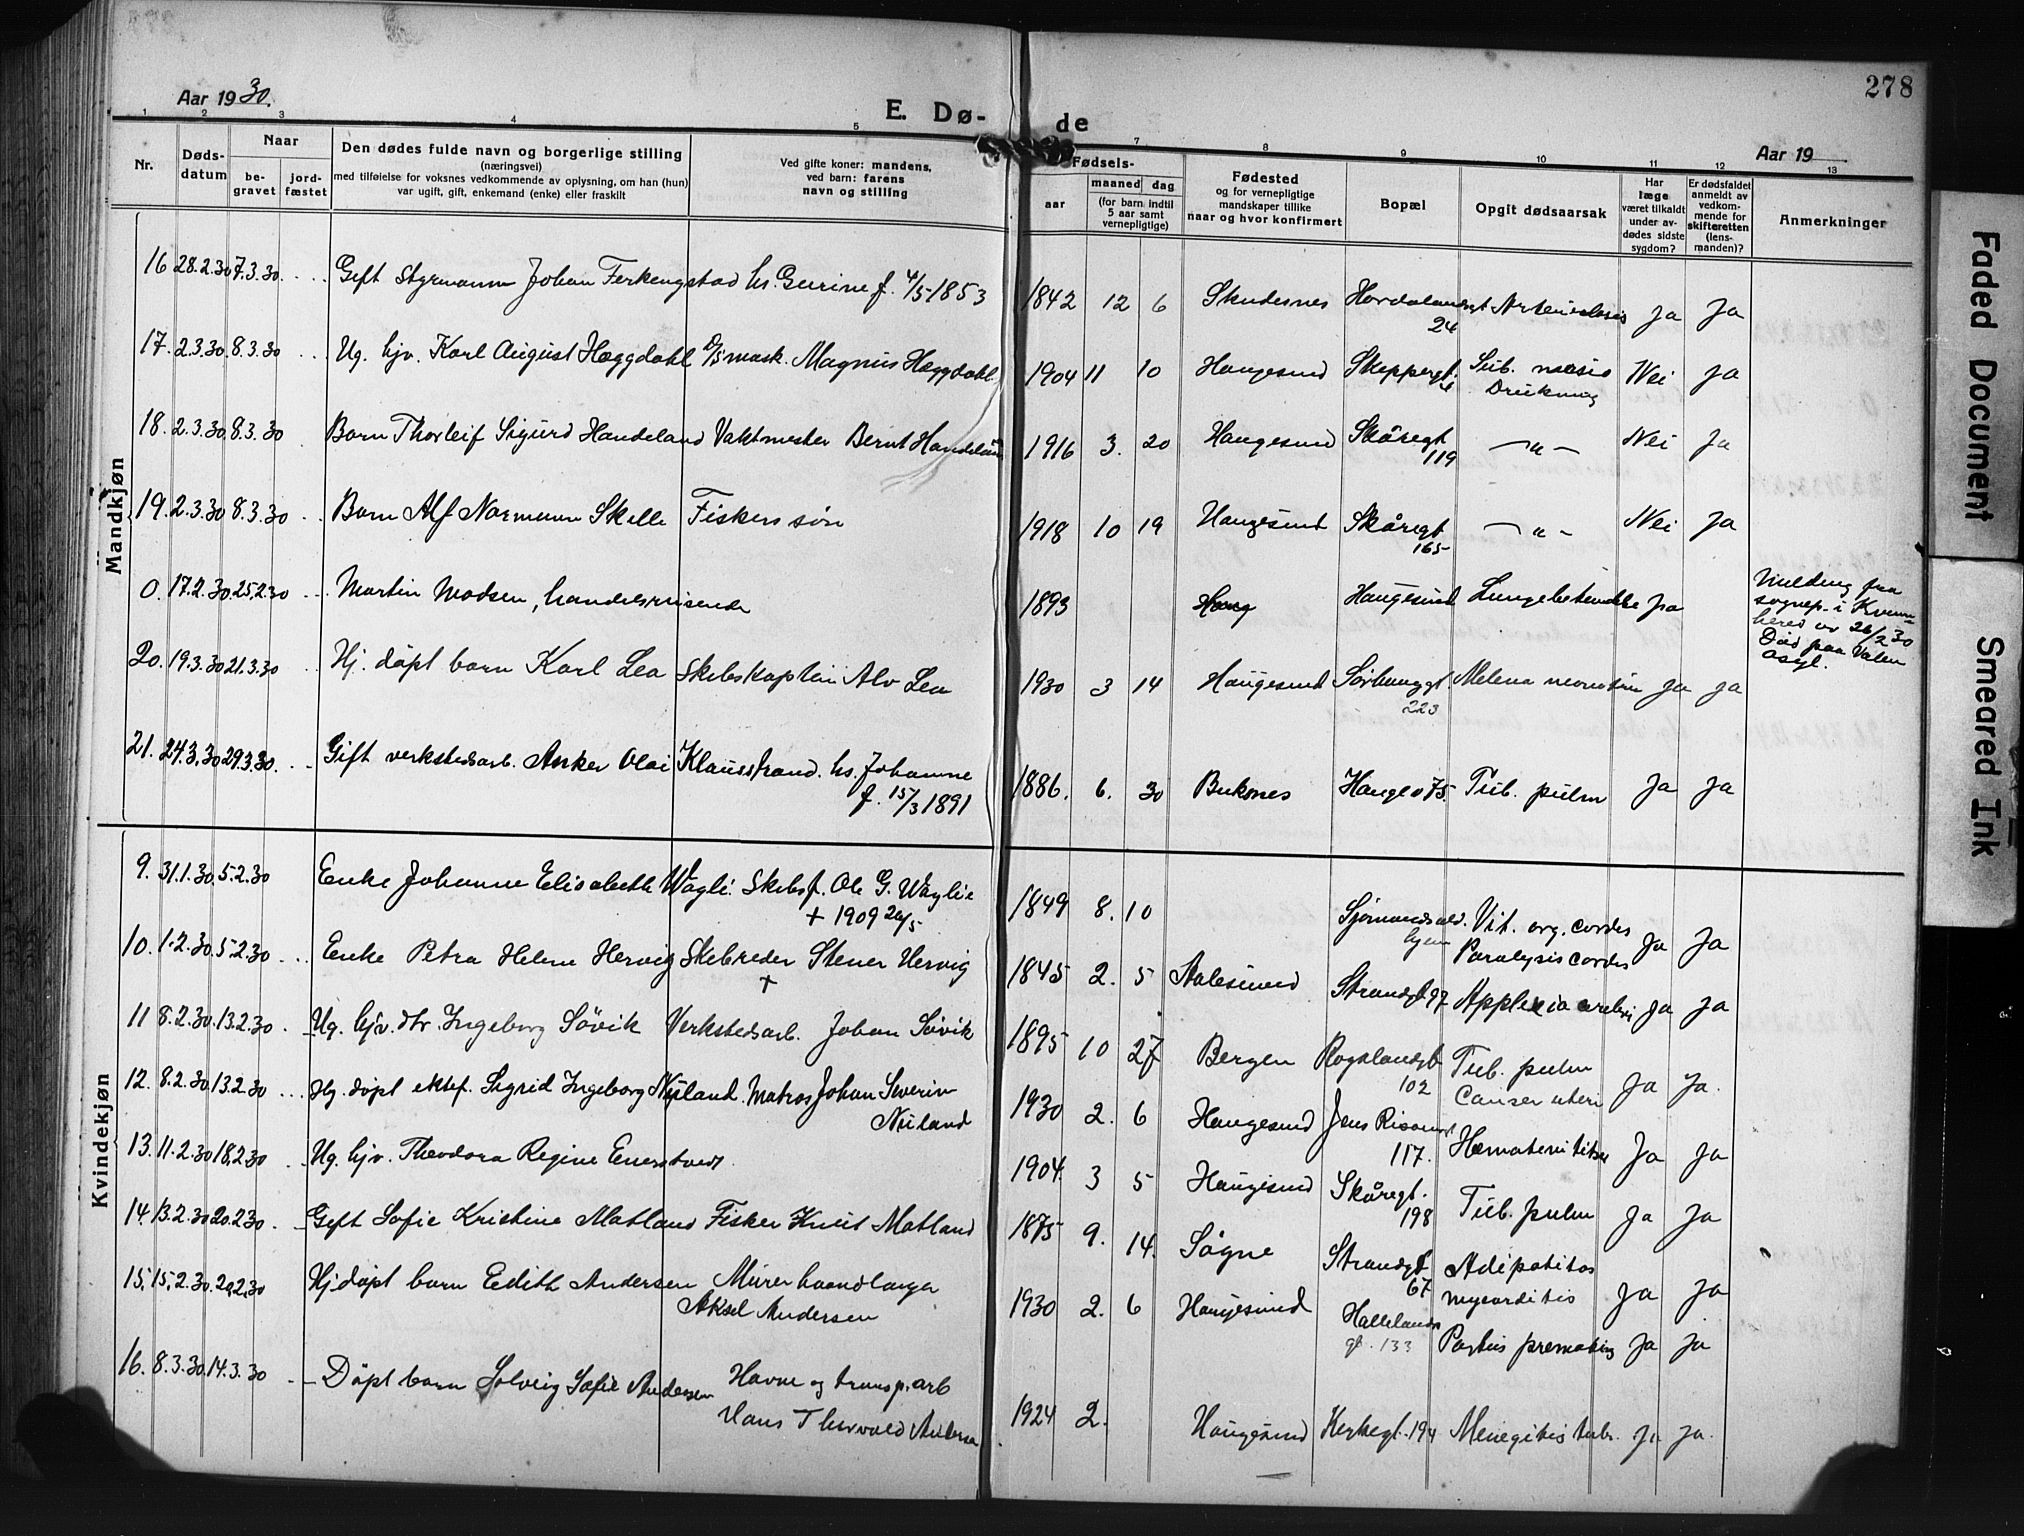 278
Aar 1930.
E. Dø-
de
Aar 19
1 2 3 4 5 7 8 9 10 11 12 13
Nr.
Døds-
datum
Naar
be-
gravet
jord-
fæstet
Den dødes fulde navn og borgerlige stilling
(næringsvei)
med tilføielse for voksnes vedkommende av oplysning, om han (hun)
var ugift, gift, enkemand (enke) eller fraskilt
Ved gifte koner: mandens,
ved barn: farens
navn og stilling
Fødsels-
aar
maaned dag
(for barn indtil
5 aar samt
vernepligtige)
Fødested
og for vernepligtige
mandskaper tillike
naar og hvor konfirmert
Bopæl
Opgit dødsaarsak
Har
læge
været tilkaldt
under av-
dødes sidste
sygdom?
Er dødsfaldet
anmeldt av
vedkom-
mende for
skifteretten
(lens-
manden)?
Anmerkninger
Mandkjøn
16 28.2.30 7.3.30. Gift Styrmann Johan Ferkengstad hs. Gurine f. 4/5 1853 1842 12 6 Skudesnes Hordalandsgt Arteriosclerosis Ja Ja
24
17. 2.3.30 8.3.30 Ug. hjv. Karl August Hæggdahl D/S mask. Magnus Hæggdahl 1904 11 10 Haugesund Skippergt. Sub. Nei Ja
Drukning
18. 2.3.30 8.3.30 Barn Thorleif Sigurd Handeland Vaktmester Bernt Handeland 1916 3. 20 Haugesund Skåregt — " — Nei Ja
119
19. 2.3.30 8.3.30 Barn Alf Normann Skelle Fiskers søn 1918 10 19 Haugesund Skåregt — " — Nei Ja
165
0. 17.2.30 25.2.30 Martin Madsen, handelsreisende 1893 Haug Haugesund Lungebetendelse Ja
Melding fra
sognep. i Kvinn-
hered av 26/2 30
Død paa Valen
asyl.
20. 19.3.30 21.3.30 Hj. døpt barn Karl Lea Skibskaptein Alv Lea 1930 3 14 Haugesund Sørhauggt. Melena neonatum Ja Ja
223
21. 24.3.30 29.3.30. Gift verkstedsarb. Anker Olai Klausstrand. hs. Johanne 1886. 6. 30 Buksnes Haugev 75. Tub. pulm Ja Ja
f. 15/3 1891
Kvindekjøn
9. 31.1.30. 5.2.30 Enke Johanne Elisabeth Vågli. Skibsf. Ole G. Våglie 1849 8. 10 Sjømands Vit. org. cordis Ja Ja
† 1909 20/5 hjem Paralysis cordis
10. 1.2.30. 5.2.30 Enke Petra Helene Hervig Skibreder Stener Hervig 1845 2. 5 Aalesund Strandgt 97 Applexia cerebri Ja Ja
†
11 8.2.30. 13.2.30. Ug. hjv. dtr Ingeborg Søvik Verkstedsarb. Johan Søvik 1895 10 27 Bergen Rogalandsgt Tub. pulm Ja Ja.
102 Canser uteri
12. 8.2.30 13.2.30 Hj. døpt ektef. Sigrid Ingeborg Nyland. Matros Johan Severin 1930 2. 6 Haugesund Jens Risoesgt Hæmatemitesis Ja Ja
Nuland 117.
13. 11.2.30 18.2.30 Ug. hjv. Theodora Regine Enerstvedt 1904. 3 5 Haugesund Skåregt. Tub. pulm Ja Ja
198
14. 13.2.30 20.2.30. Gift Sofie Kristine Matland Fisker Knut Matland 1875 9. 14. Søgne Strandgt Adipositas Ja Ja
67 mycorditis
15. 15.2.30. 20.2.30 Hj. døpt barn Edith Andersen Murer haandlanger 1930 2. 6 Haugesund Hallelands Partus prematurus Ja Ja
Aksel Andersen gt. 133
16. 8.3.30. 14.3.30 Døpt barn Solveig Sofie Andersen Havne og transp. arb 1924 2. Haugesund Kirkegt. 194 Menegitis tub. Ja Ja.
Hans Thorvald Andersen
Faded Document
Smeared Ink